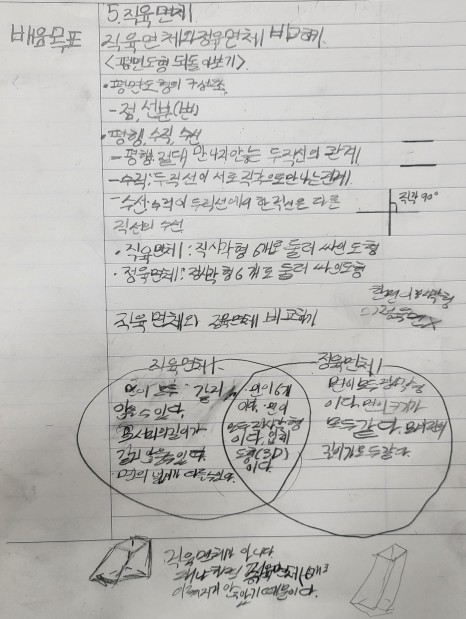 5. 직육면체
배움목표
직육면체와 정육면체 비교하기.
<평면도형 되돌아보기>.
•평면도형의 구성요소
-점, 선분(변)
•평행, 수직, 수선
-평행: 절대 만나지 않는 두직선의 관계
-수직: 두직선이 서로 직각으로 만나는 관계.
-수선: 수직인 두직선에서 한 직선은 다른
직선의 수선
직각 90°
•직육면체: 직사각형 6개로 둘러 싸인 도형
•정육면체: 정사각형 6개로 둘러 싸인 도형
직육면체와 정육면체 비교하기
직육면체
정육면체
면이 모두
않을 수 있다.
모서리의 길이가
같지 않을 수 있다.
면의 넓이가
면이 6개
이다. 면이
모두 직사각형
이다. 입체
도형(3D)
이다.
면이 모두 정사각형
이다. 면의 크기가
모두 같다. 모서리의
길이가 모두 같다.
직육면체가 아니다.
왜냐하면 직육면체 6개로
이루어지지 않았기 때문이다.